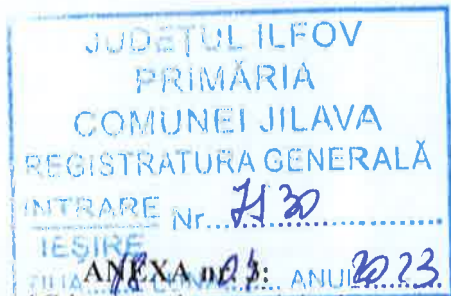 JUDEȚUL ILFOV
PRIMĂRIA
COMUNEI JILAVA
REGISTRATURA GENERALĂ
INTRARE Nr.
IEȘIRE
ZIUA ANEXA nr. 3: ANUL 2023